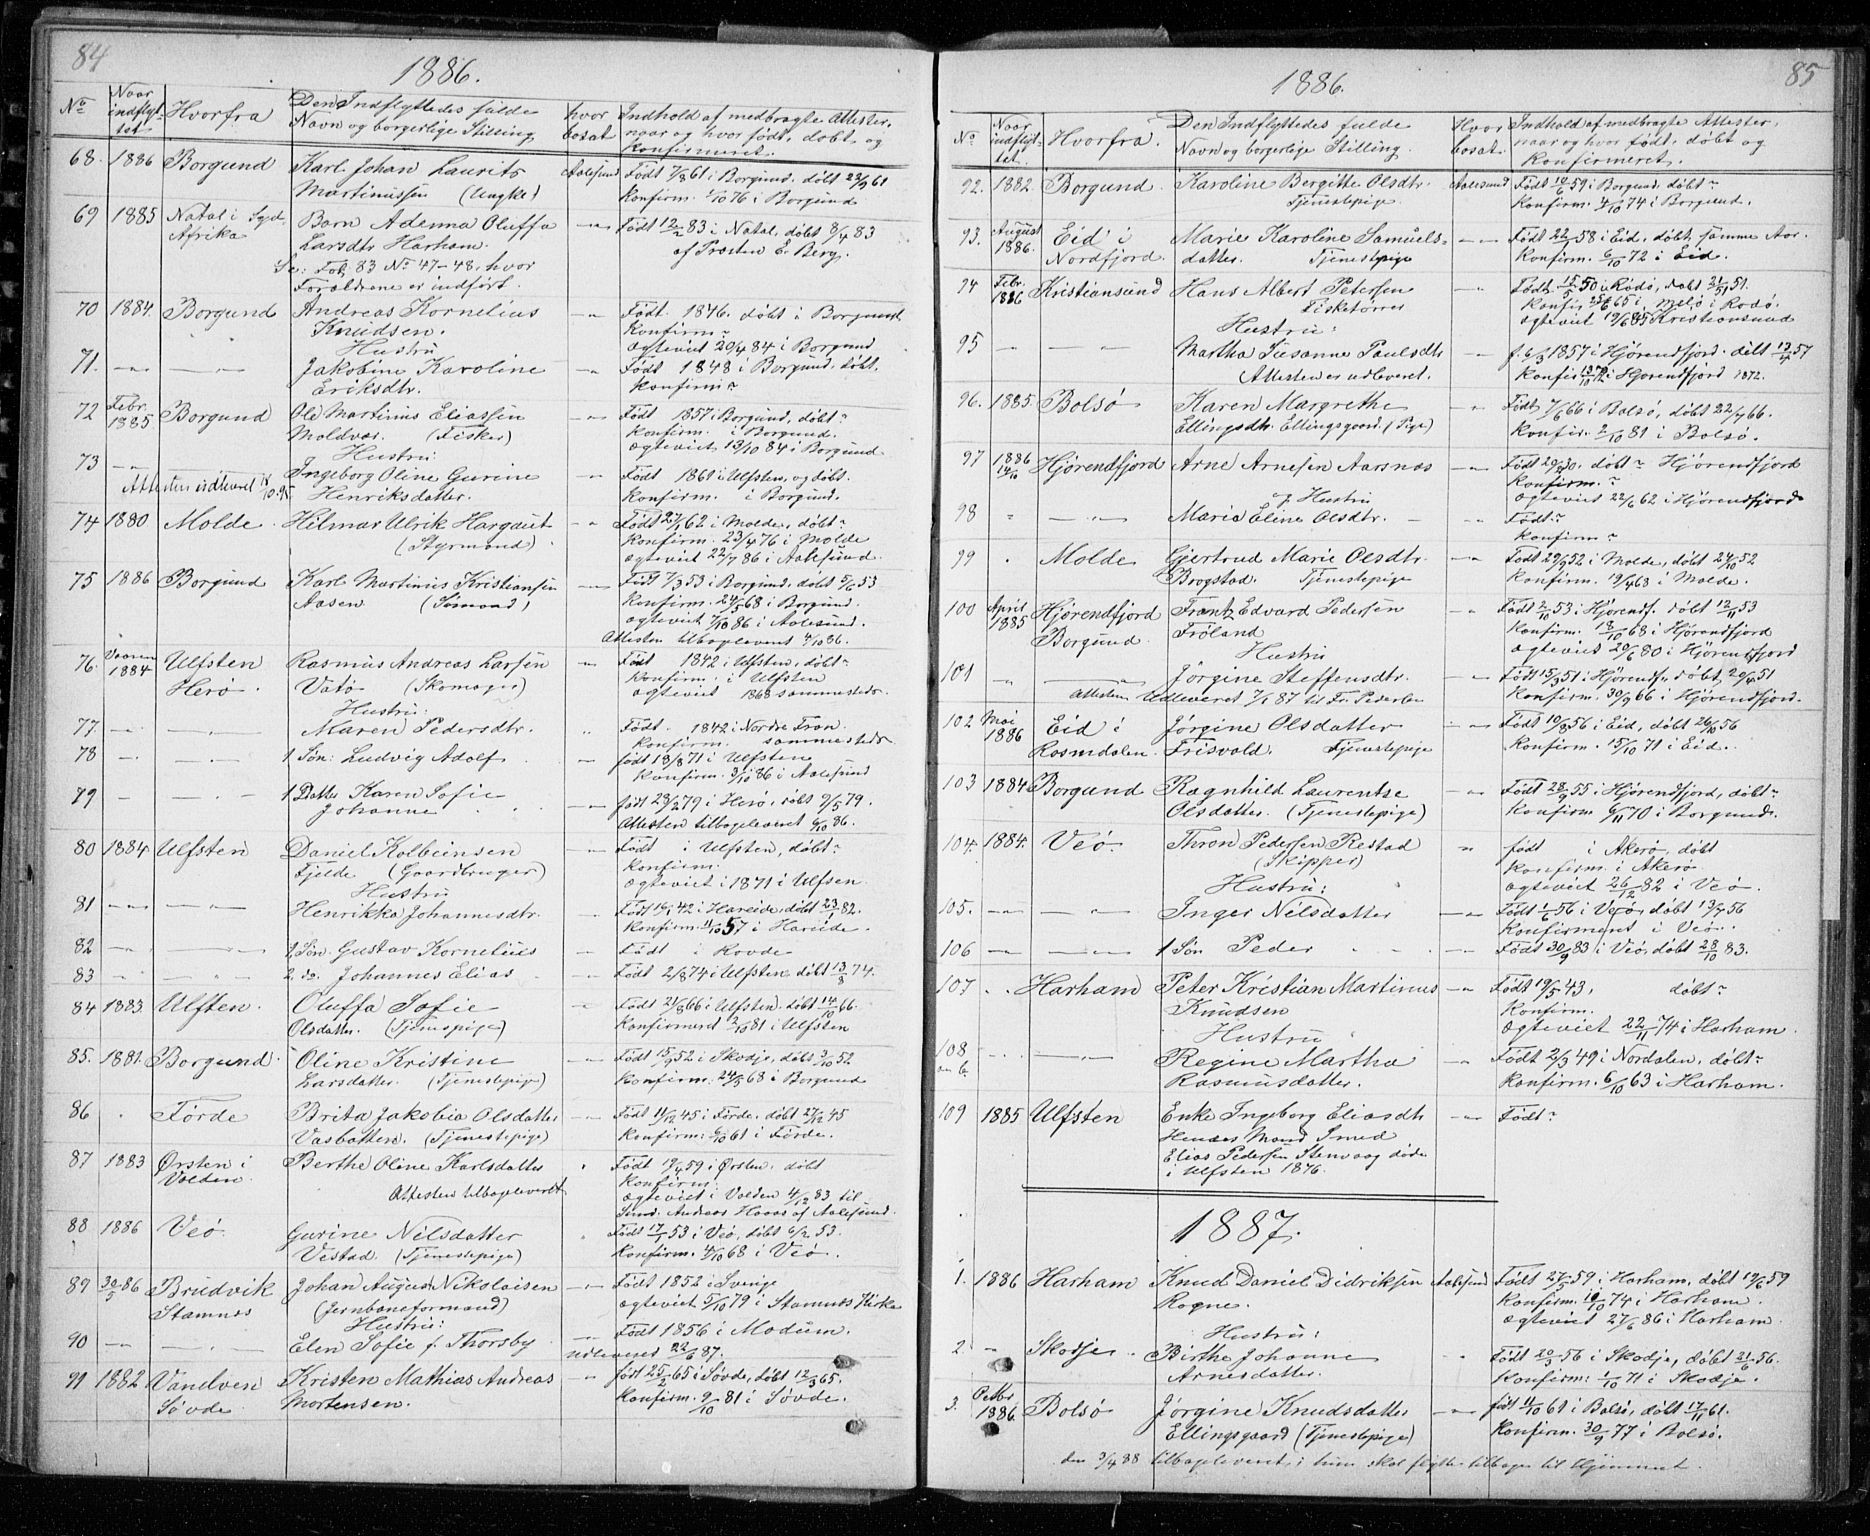 84
1886.
No
Naar indflyttet
Hvorfra
Den Indflyttedes fulde Navn og borgerlige Stilling
hvor bosat
Indhold af medbragte Attester, naar og hvor født, døbt og konfirmeret.
68. 1886 Borgund Karl Johan Laurits Aalesund Født 7/8 61 i Borgund, døbt 22/9 61
Martinussen (Ungkr) Konfirm. 1/10 76 i Borgund
69 1885 Natal i Syd Afrika Barn Adenna Oluffa Født 12/2 83 i Natal, døbt 8/4 83
Larsdtr Harham. af Prosten E. Berg.
Se: Fol. 83 No 47-48, hvor
Forældrene er indført.
70 1884. Borgund Andreas Kornelius Født 1846, døbt i Borgund
Knudsen. Konfirm:
Hustru Ægteviet 20/4 84 i Borgund
71. Jakobine Karoline Født 1848 i Borgund, døbt.
Eriksdtr. Konfirm:
72 Febr. 1885 Borgund Ole Martinus Eliassen Født 1857 i Borgund, døbt
Moldvær. (Fisker) Konfirm. i Borgund.
Hustru Ægteviet 13/10 84 i Borgund
73 Ingeborg Oline Gurine Født 1861 i Ulfsten, og døbt.
Attesten udleveret Henriksdatter. Konfirm. i Borgund.
74 1880 Molde Hilmar Ulrik Hargaut Født 27/1 62 i Molde, døbt
(Styrmand) Konfirm. 23/4 76 i Molde
Ægteviet 22/7 86 i Aalesund.
75 1886 Borgund Karl Martinus Kristiansen Født 7/3 53 i Borgund, døbt 5/6 53
Aasen (Sømand) Konfirm. 24/5 68 i Borgund.
Ægteviet 7/10 86 i Aalesund.
Attesten tilbageleveret 4/10 86.
76. Vaaren 1884 Ulfsten Rasmus Andreas Larsen Født 1842 i Ulfsten, døbt
Herø. Vatø (Skomager) Konfirm. i Ulfsten
Hustru: Ægteviet 1868 sammesteds.
77 Maren Pedersdtr. Født 1842 i Nordre Fron.
Konfirm. sammesteds
78 1 Søn: Ludvig Adolf født 18/8 71 i Ulfsten
Konfirm. 3/10 86 i Aalesund
79 1 Datter Karen Sofie født 23/2 79 i Herø, døbt 9/5 79.
Johanne Attesten tilbageleveret 6/10 86.
80 1884 Ulfsten Daniel Kolbeinsen Født i Ulfsten, døbt
Fjelde (Gaardbruger) Konfirm.
Hustru Ægteviet i 1871 i Ulfsen.
81 Henrikka Johannesdtr. Født 16/1 42 i Hareide, døbt 23/ 82.
Konfirm. 11/10 57 i Hareide.
82 1. Søn. Gustav Kornelius Født i Rovde
83 2. do. Johannes Elias Født 2/8 74 i Ulfsten, døbt 13/8 74.
84 1883 Ulfsten. Oluffa Sofie Født 21/8 66 i Ulfsten, døbt 14/10 66.
Olsdatter. (Tjenespige) Konfirmeret 2/10 81 i Ulfsten
85. 1881. Borgund Oline Kristine Født 15/9 52 i Skodje, døbt 3/10 52
Larsdatter. (Tjenestepige) Konfirm: 24/5 68 i Borgund
86 Førde Brita Jakobia Olsdatter Født 11/12 45 i Førde, døbt 27/12 45
Vasbotten. (Tjenestepige) Konfirm: 6/10 61 i Førde.
87 1883 Ørsten i Berthe Oline Karlsdatter Født 19/4 59 i Ørsten, døbt
Volden. Konfirm:
Attesten tilbageleveret Ægteviet i Volden 4/12 83 til
Smd. Andreas Haaas af Aalesund.
88 1886 Veø Gurine Nilsdatter Født 17/1 53 i Veø, døbt 6/2 53.
Vestad. (Tjenestepige) Konfirm. 4/10 68 i Veø.
89 30/5 86 Brudvik Johan August Nikolaisen Født 1852 i Sverige
Stamnes (Jernbaneformand) Ægteviet 5/10 79 i Stamnes Kirke
Hustru:
90 Elen Sofie f. Thorsby Født 1856 i Modum.
Udleveret 22/6 87.
91 1882 Vanelven Kristen Mathias Andreas født 25/2 65 i Søvde, døbt 12/3 65.
Søvde Mortensen. Konfirm. 9/10 81 i Søvde.
85
1886.
No
Naar indflyttet
Hvorfra.
Den Indflyttedes fulde Navn og borgerlige Stilling.
Hvor bosat.
Indhold af medbragte Attester, naar og hvor født, døbt og konfirmeret.
92. 1882. Borgund. Karoline Bergitte Olsdtr. Aalesund Født 10/6 59 i Borgund, døbt
Tjenestepige. Konfirm. 4/10 74 i Borgund.
93. August 1886. Eid i Marie Karoline Samuels- Født 22/5 58 i Eid, døbt samme Aar.
Nordfjord. datter. Tjenestepige Konfirm. 6/10 72 i Eid.
94 Febr. 1886 Kristiansund Hans Albert Petersen Født 15/5 50 i Rødø, døbt 21/4 51.
Fisketørrer Konfir. 25/6 65 i Melø i Rødø.
Hustru: Ægteviet 19/6 85 Kristiansund
95 Martha Susanne Paulsdtr f. 6/3 1857 i Hjørendfjord. døbt 13/4 57
(Attesten er udleveret. Konfir. i Hjørendfjord 1872.
96. 1885 Bolsø Karen Margrethe Født 7/6 66 i Bolsø, døbt 22/7 66.
Ellingsdtr. Ellingsgaard. (Pige) Konfir. 2/10 81 i Bolsø.
97 1886 14/10 Hjørendfjord Arne Arnesen Aarsnæs Født 20/2 30. døbt Hjørendfjord
Konfirm.
og Hustru Ægteviet 22/6 62 i Hjørendfjord
98 Marie Eline Olsdtr. Født:
Konfirm:
99 Molde Gjertrud Marie Olsdtr. Født 29/9 52 i Molde, døbt 24/10 52
Brogstad. Tjenestepige Konfirm. 19/4 68 i Molde.
100 April 1885 Hjørendfjord Frantz Edvard Pedersen Født 2/10 53 i Hjørendf. døbt 12/11 53
Borgund Frøland Konfirm. 18/10 68 i Hjørendfjord
Hustru Ægteviet 20/6 80 i Hjørendfjord
101 Jørgine Steffensdtr Født 15/3 51 i Hjørendf. døbt 20/4 51
Attesten Udleveret 7/1 87 til Fr. Pedersen Konfirm. 30/9 66 i Hjørendfjord.
102 Mai 1886 Eid i Jørgine Olsdatter Født 10/8 56 i Eid, døbt 26/10 56
Romsdalen. Frisvold. Tjenestepige Konfirm. 15/10 71 i Eid.
103 1884 Borgund Ragnhild Laurentse Født 28/9 55 i Hjørendfjord, døbt
Olsdatter. (Tjenestepige) Konfirm 6/11 70 i Borgund.
104. 1884. Veø Thron Pedersen Restad født i Akerø, døbt
(Skipper) Konfirm. i Akerø
Hustru: Ægteviet 26/12 82 i Veø.
105. Inger Nilsdatter Født 1/6 56 i Veø, døbt 13/7 56
Konfirmert i Veø.
106 1 Søn Peder Født 30/9 83 i Veø, døbt 28/10 83.
107 Harham Peter Kristian Martinus Født 19/5 43, døbt
Knudsen Konfirm.
Hustru Ægteviet 22/11 74 i Harham.
108 Regine Martha Født 2/3 49 i Nordalen, døbt
Rasmusdatter. Konfirm. 6/10 63 i Harham.
109 1885 Ulfsten Enke Ingeborg Eliasdtr Født
Hendes Mand Smed
Elias Pedersen Stenvaag døde
i Ulfsten 1876.
1887.
1. 1886 Harham Knud Daniel Didriksen Aalesund Født 27/5 59 i Harham, døbt 19/6 59
Rogne. Konfirm. /10 74 i Harham.
Ægteviet 27/6 86 i Harham.
Hustru:
2. Skodje. Birthe Johanne Født 20/3 56 i Skodje, døbt 21/6 56.
Arnesdatter. Konfirm: 1/10 71 i Skodje.
3. Octbr 1886. Bolsø Jørgine Knudsdatter født 11/10 61 i Bolsø, døbt 17/11 61.
Ellingsgaard (Tjenestepige) Konfirm. 30/9 77 i Bolsø.
den 3/4 88 tilbageleveret, hun skal flytte tilbage til Hjemmet.